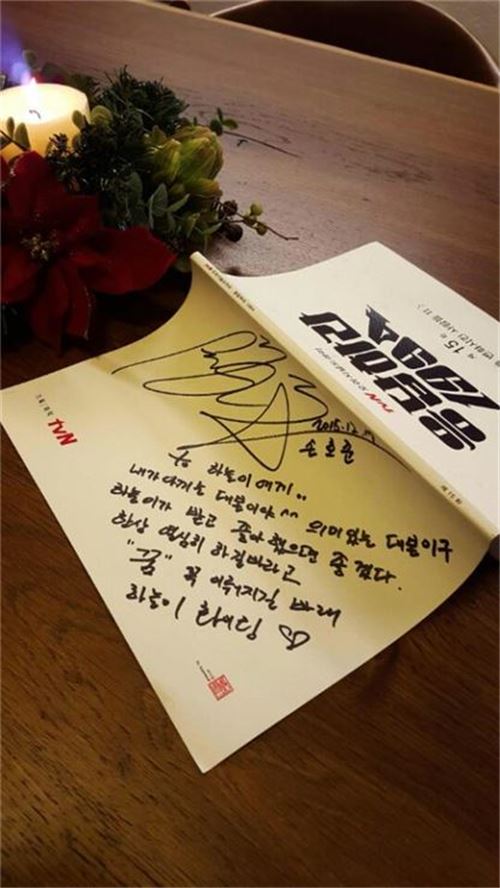 응답하라
1994
tvN
제 15 회
tvN
2015.12.
손호준
꿈 하늘이에게..
내가 아끼는 대본이야 ^^ 의미있는 대본이구
하늘이가 받고 좋아했으면 좋겠다.
항상 열심히 하길바라고
"꿈" 꼭 이뤄지길 바래
하늘이 화이팅 ♡